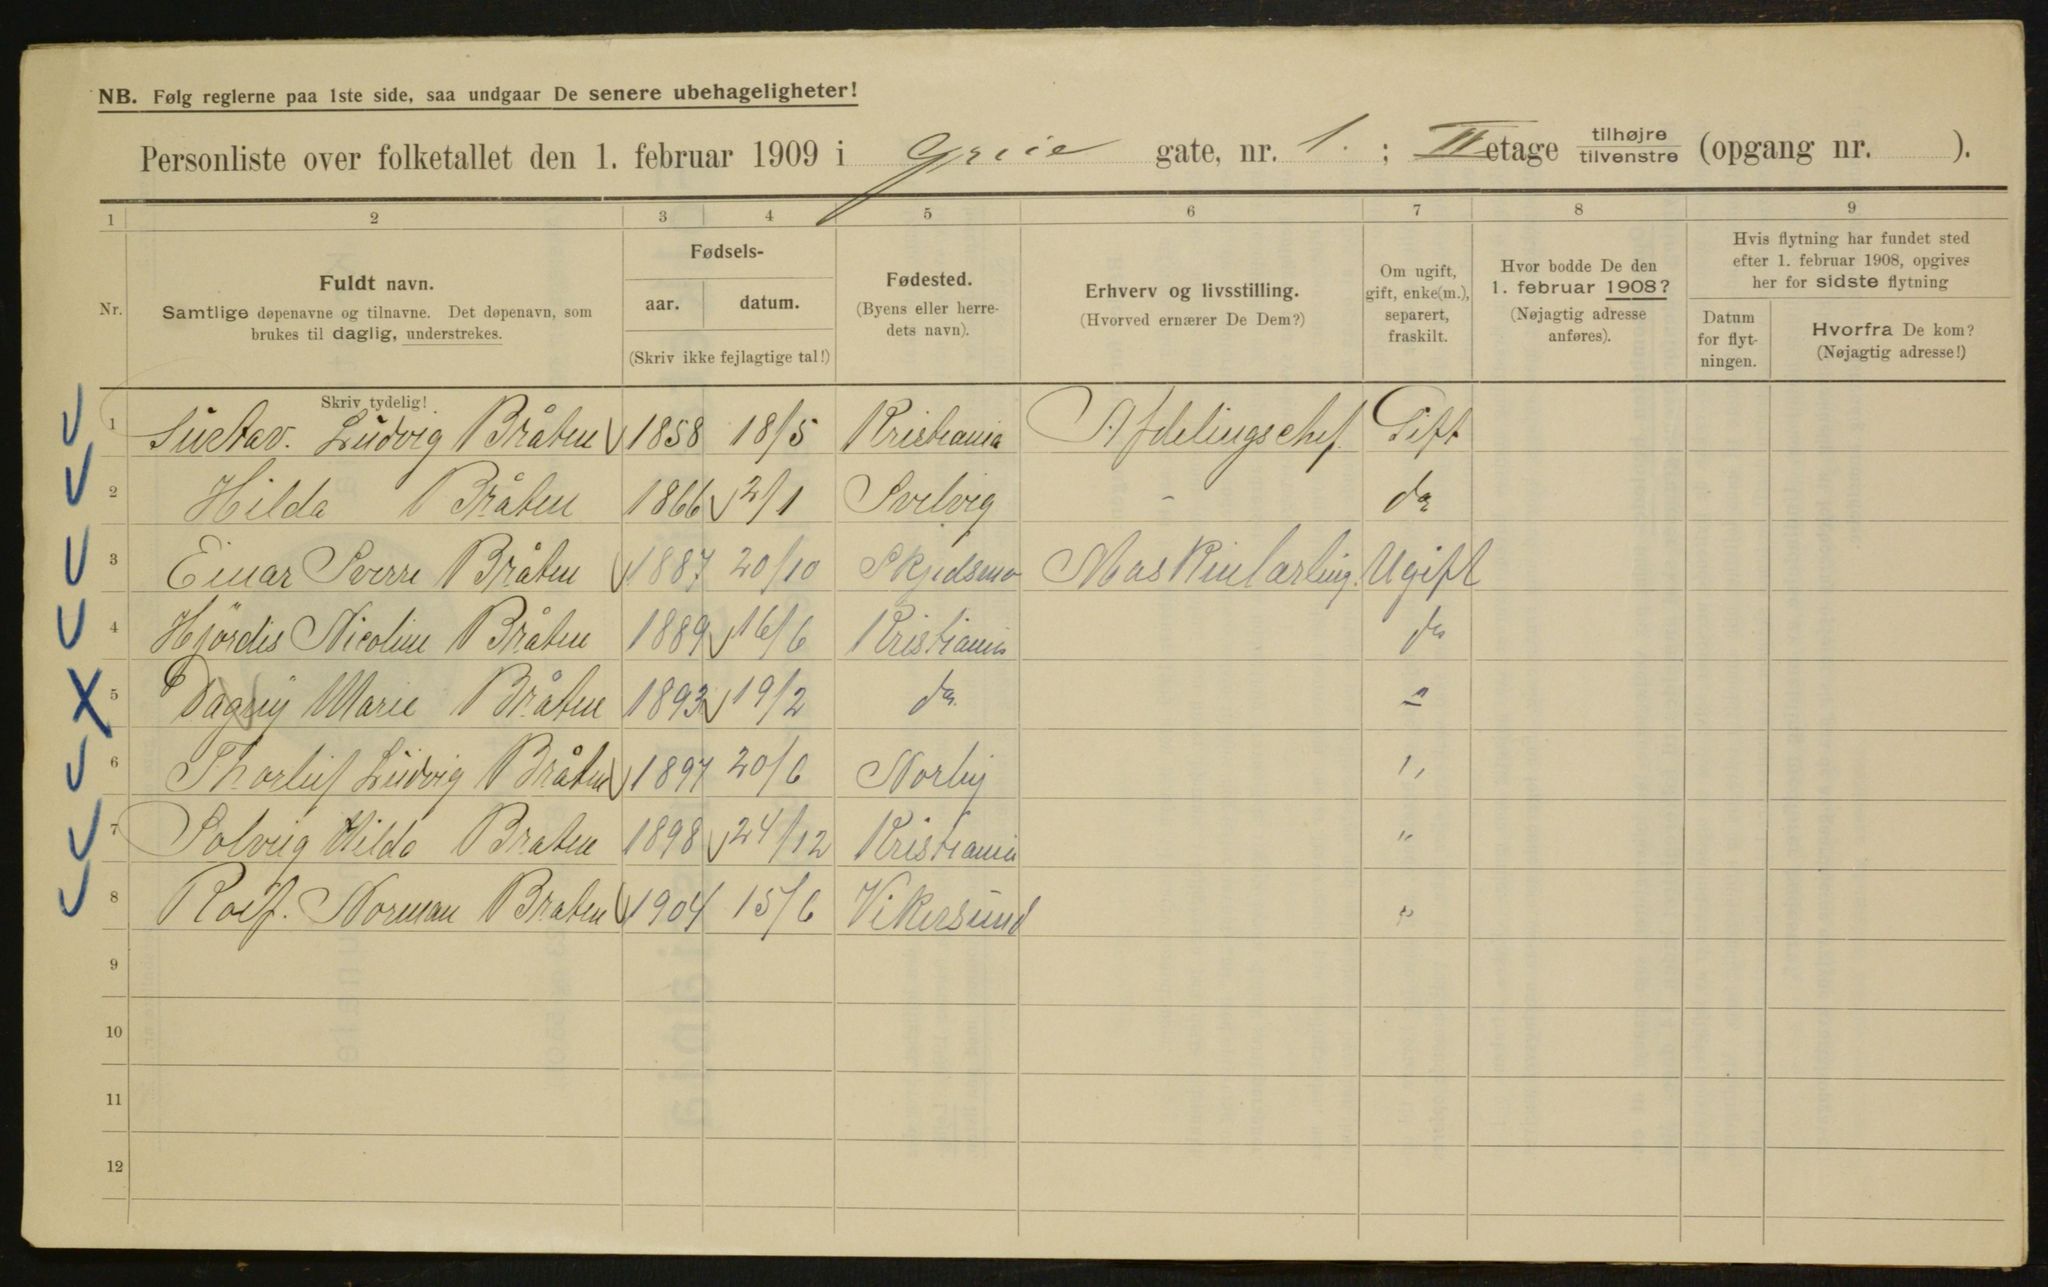 NB. Følg reglerne paa 1ste side, saa undgaar De senere ubehageligheter!
Personliste over folketallet den 1. februar 1909 i Griis gate, nr. 1. ; II etage tilhøjre / tilvenstre (opgang nr. ).
1 2 3 4 5 6 7 8 9
Nr.
Fuldt navn.
Samtlige døpenavne og tilnavne. Det døpenavn, som
brukes til daglig, understrekes.
Fødsels-
aar. datum.
(Skriv ikke fejlagtige tal!)
Fødested.
(Byens eller herre-
dets navn).
Erhverv og livsstilling.
(Hvorved ernærer De Dem?)
Om ugift,
gift, enke(m.),
separert,
fraskilt.
Hvor bodde De den
1. februar 1908?
(Nøjagtig adresse
anføres).
Hvis flytning har fundet sted
efter 1. februar 1908, opgives
her for sidste flytning
Datum
for flyt-
ningen.
Hvorfra De kom?
(Nøjagtig adresse!)
Skriv tydelig!
1 Gustav. Ludvig Bråten 1858 18/5 Kristiania Afdelingschef. Gift
2 Hilda Bråten 1866 2/1 Svelvig - do
3 Einar Sverre Bråten 1887 20/10 Skjedsmo Maskinlærling. Ugift
4 Hjördis Nicoline Bråten 1889 16/6 Kristiania do
5 Dagny Marie Bråten 1893 19/2 do. "
6 Thorleif Ludvig Bråten 1897 20/6 Norby "
7 Solveig Hilda Braten 1898 24/12 Kristiania "
8 Rolf. Norman Braten 1904 15/6 Vikersund "
9
10
11
12